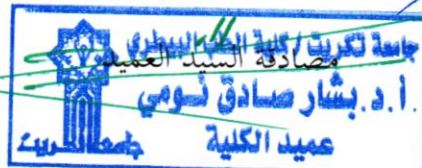 جامعة تكريت / كلية الطب البيطري
مصادقة السيد العميد
أ.د. بشار صادق نومي
عميد الكلية
جامعة تكريت